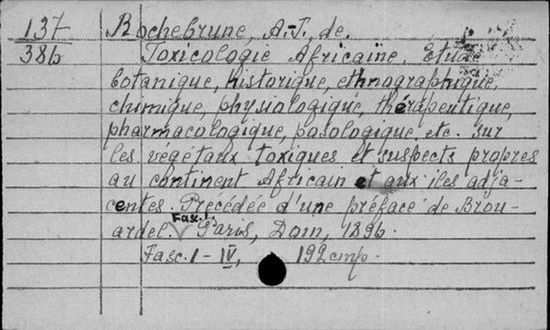 137 Rochebrune, A.-T. de.
386 Toxicologie Africaine. Etude
botanique, historique, ethnographique,
chimique, physiologique, thérapeutique,
pharmacologique, posologique, etc. sur
les végétaux toxiques et suspects propres
au continent Africain et aux iles adja-
centes. Precédée d'une préface de Brou-
ardel. Fasc. I. Paris, Doin, 1896.
Fasc. I - IV, 192 cmp.